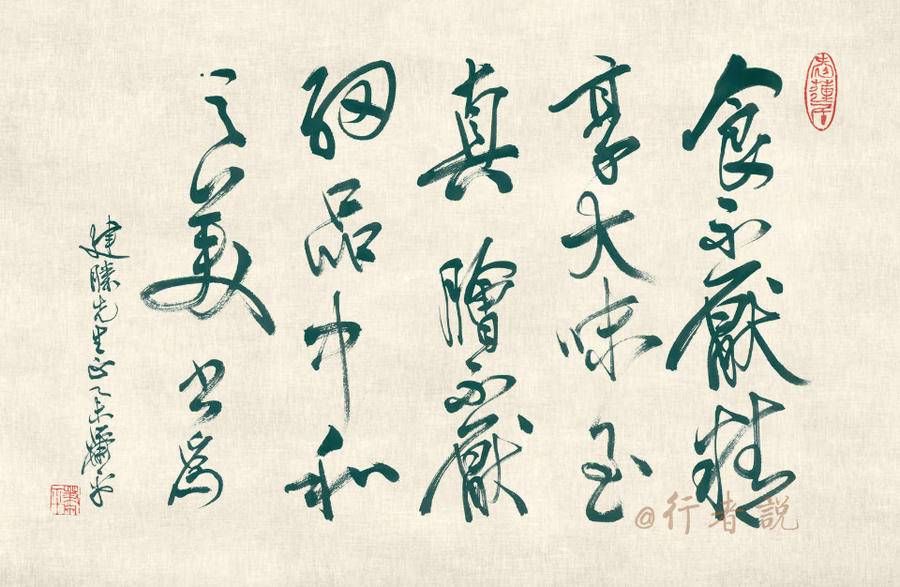 食不厭精
享大味至
真膾不厭
細品中和
之美書為
建勝先生正乙未蕭平
@行者説